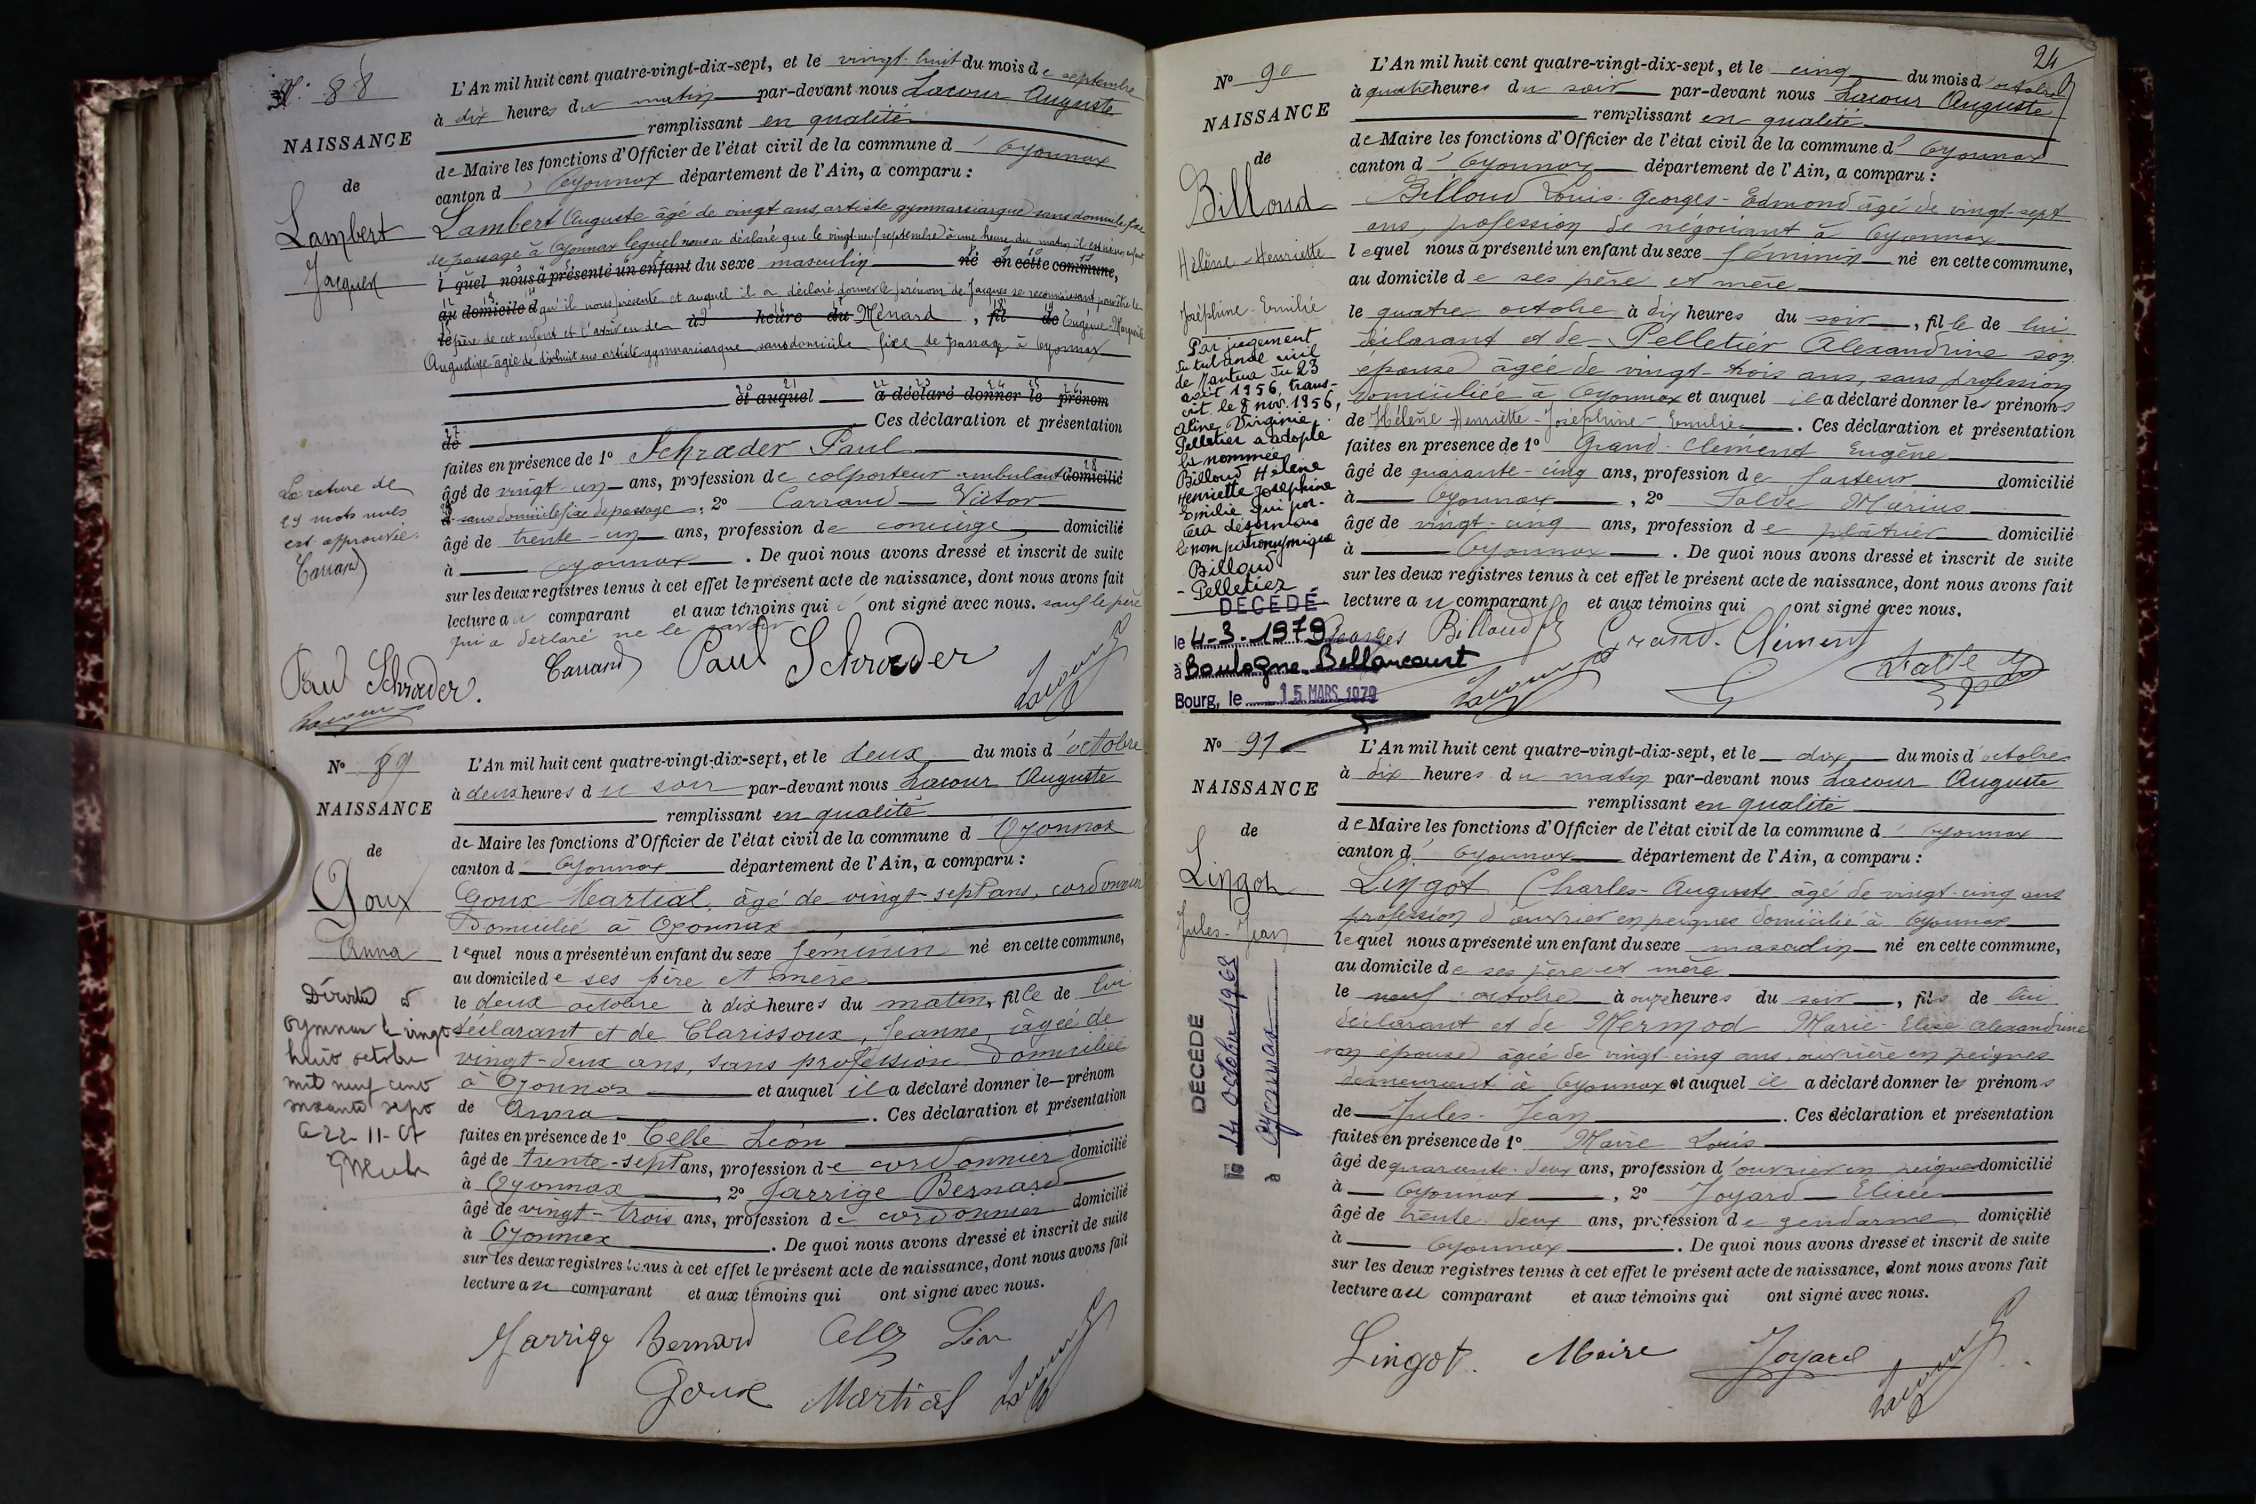 N° 88
NAISSANCE
de
Lambert
Jacques
L'An mil huit cent quatre-vingt-dix-sept, et le vingt-huit du mois de septembre
à dix heures du matin par-devant nous Lacour Auguste
remplissant en qualité
de Maire les fonctions d'Officier de l'état civil de la commune d'Oyonnax
canton d'Oyonnax département de l'Ain, a comparu :
Lambert Auguste âgé de vingt ans, artiste gymnasiarque sans domicile fixe
de passage à Oyonnax lequel nous a déclaré que le vingt-neuf septembre à une heure du matin il est né un enfant
l quel nous a présenté un enfant du sexe masculin né en cette commune,
au domicile d qu'il nous présente et auquel il a déclaré donner le prénom de Jacques se reconnaissant pour être le
le père de cet enfant et l'avoir eu de à heure du Ménard , fil de Eugénie-Marguerite
Augustine âgée de dix-huit ans artiste gymnasiarque sans domicile fixe de passage à Oyonnax
et auquel a déclaré donner le prénom
de Ces déclaration et présentation
faites en présence de 1° Schrœder Paul
âgé de vingt-un ans, profession de colporteur ambulant domicilié
à sans domicile fixe de passage, 2° Carrand Victor
âgé de trente-un ans, profession de concierge domicilié
à Oyonnax. De quoi nous avons dressé et inscrit de suite
sur les deux registres tenus à cet effet le présent acte de naissance, dont nous avons fait
lecture au comparant et aux témoins qui ont signé avec nous. sauf le père
qui a déclaré ne le savoir
La rature de
29 mots nuls
est approuvée.
Carrand
Paul Schrœder.
Carrand Paul Schrœder Lacour
Lacour
N° 89
NAISSANCE
de
Goux
Anna
Décédée à
Oyonnax le vingt
huit octobre
mil neuf cent
soixante sept
L'An mil huit cent quatre-vingt-dix-sept, et le deux du mois d'octobre
à deux heures du soir par-devant nous Lacour Auguste
remplissant en qualité
de Maire les fonctions d'Officier de l'état civil de la commune d'Oyonnax
canton d'Oyonnax département de l'Ain, a comparu :
Goux Martial, âgé de vingt-sept ans, cordonnier
Domicilié à Oyonnax
lequel nous a présenté un enfant du sexe féminin né en cette commune,
au domicile de ses père et mère
le deux octobre à dix heures du matin, fille de lui
déclarant et de Clarissoux, Jeanne, âgée de
vingt-deux ans, sans profession. Domiciliée
à Oyonnax et auquel il a déclaré donner le prénom
de Anna. Ces déclaration et présentation
faites en présence de 1° Celle Léon
âgé de trente-sept ans, profession de cordonnier domicilié
à Oyonnax, 2° Jarrige Bernard
âgé de vingt-trois ans, profession de cordonnier domicilié
à Oyonnax. De quoi nous avons dressé et inscrit de suite
sur les deux registres tenus à cet effet le présent acte de naissance, dont nous avons fait
lecture au comparant et aux témoins qui ont signé avec nous.
Jarrige Bernard Celle Léon
Goux Martial Lacour
24
N° 90
NAISSANCE
de
Billoud
Hélène-Henriette
Joséphine-Emilie
Par jugement
du tribunal civil
de Nantua du 23
août 1956, trans-
crit le 8 nov. 1956,
Aline Virginie
Pelletier a adopté
la nommée
Billoud Hélène
Henriette Joséphine
Emilie qui por-
tera désormais
le nom patronymique
Billoud
- Pelletier
DÉCÉDÉ
le 4-3-1979
à Boulogne Billancourt
Bourg, le 15 MARS 1979
L'An mil huit cent quatre-vingt-dix-sept, et le cinq du mois d'octobre
à quatre heures du soir par-devant nous Lacour Auguste
remplissant en qualité
de Maire les fonctions d'Officier de l'état civil de la commune d'Oyonnax
canton d'Oyonnax département de l'Ain, a comparu :
Billoud Louis-Georges-Edmond âgé de vingt-sept
ans, profession de négociant à Oyonnax
lequel nous a présenté un enfant du sexe féminin né en cette commune,
au domicile de ses père et mère
le quatre octobre à dix heures du soir, fille de lui
déclarant et de Pelletier Alexandrine son
épouse âgée de vingt-trois ans, sans profession
domiciliée à Oyonnax et auquel il a déclaré donner les prénoms
de Hélène Henriette-Joséphine-Emilie. Ces déclaration et présentation
faites en présence de 1° Grand-Clément Eugène
âgé de quarante-cinq ans, profession de facteur domicilié
à Oyonnax, 2° Falde Marius
âgé de vingt-cinq ans, profession de plâtrier domicilié
à Oyonnax. De quoi nous avons dressé et inscrit de suite
sur les deux registres tenus à cet effet le présent acte de naissance, dont nous avons fait
lecture au comparant et aux témoins qui ont signé avec nous.
Georges Billoud Grand-Clément
Lacour
N° 91
NAISSANCE
de
Lingot
Jules-Jean
DÉCÉDÉ
le 14 octobre 1963
à Oyonnax
L'An mil huit cent quatre-vingt-dix-sept, et le dix du mois d'octobre
à dix heures du matin par-devant nous Lacour Auguste
remplissant en qualité
de Maire les fonctions d'Officier de l'état civil de la commune d'Oyonnax
canton d'Oyonnax département de l'Ain, a comparu :
Lingot Charles-Auguste âgé de vingt-cinq ans
profession d'ouvrier en peignes domicilié à Oyonnax
lequel nous a présenté un enfant du sexe masculin né en cette commune,
au domicile de ses père et mère
le neuf octobre à onze heures du soir, fils de lui
déclarant et de Mermod Marie-Elise Alexandrine
son épouse âgée de vingt-cinq ans, ouvrière en peignes
demeurant à Oyonnax et auquel il a déclaré donner les prénoms
de Jules-Jean. Ces déclaration et présentation
faites en présence de 1° Maire Louis
âgé de quarante-deux ans, profession d'ouvrier en peignes domicilié
à Oyonnax, 2° Joyard Elisée
âgé de trente-deux ans, profession de gendarme domicilié
à Oyonnax. De quoi nous avons dressé et inscrit de suite
sur les deux registres tenus à cet effet le présent acte de naissance, dont nous avons fait
lecture au comparant et aux témoins qui ont signé avec nous.
Lingot. Maire Joyard Lacour